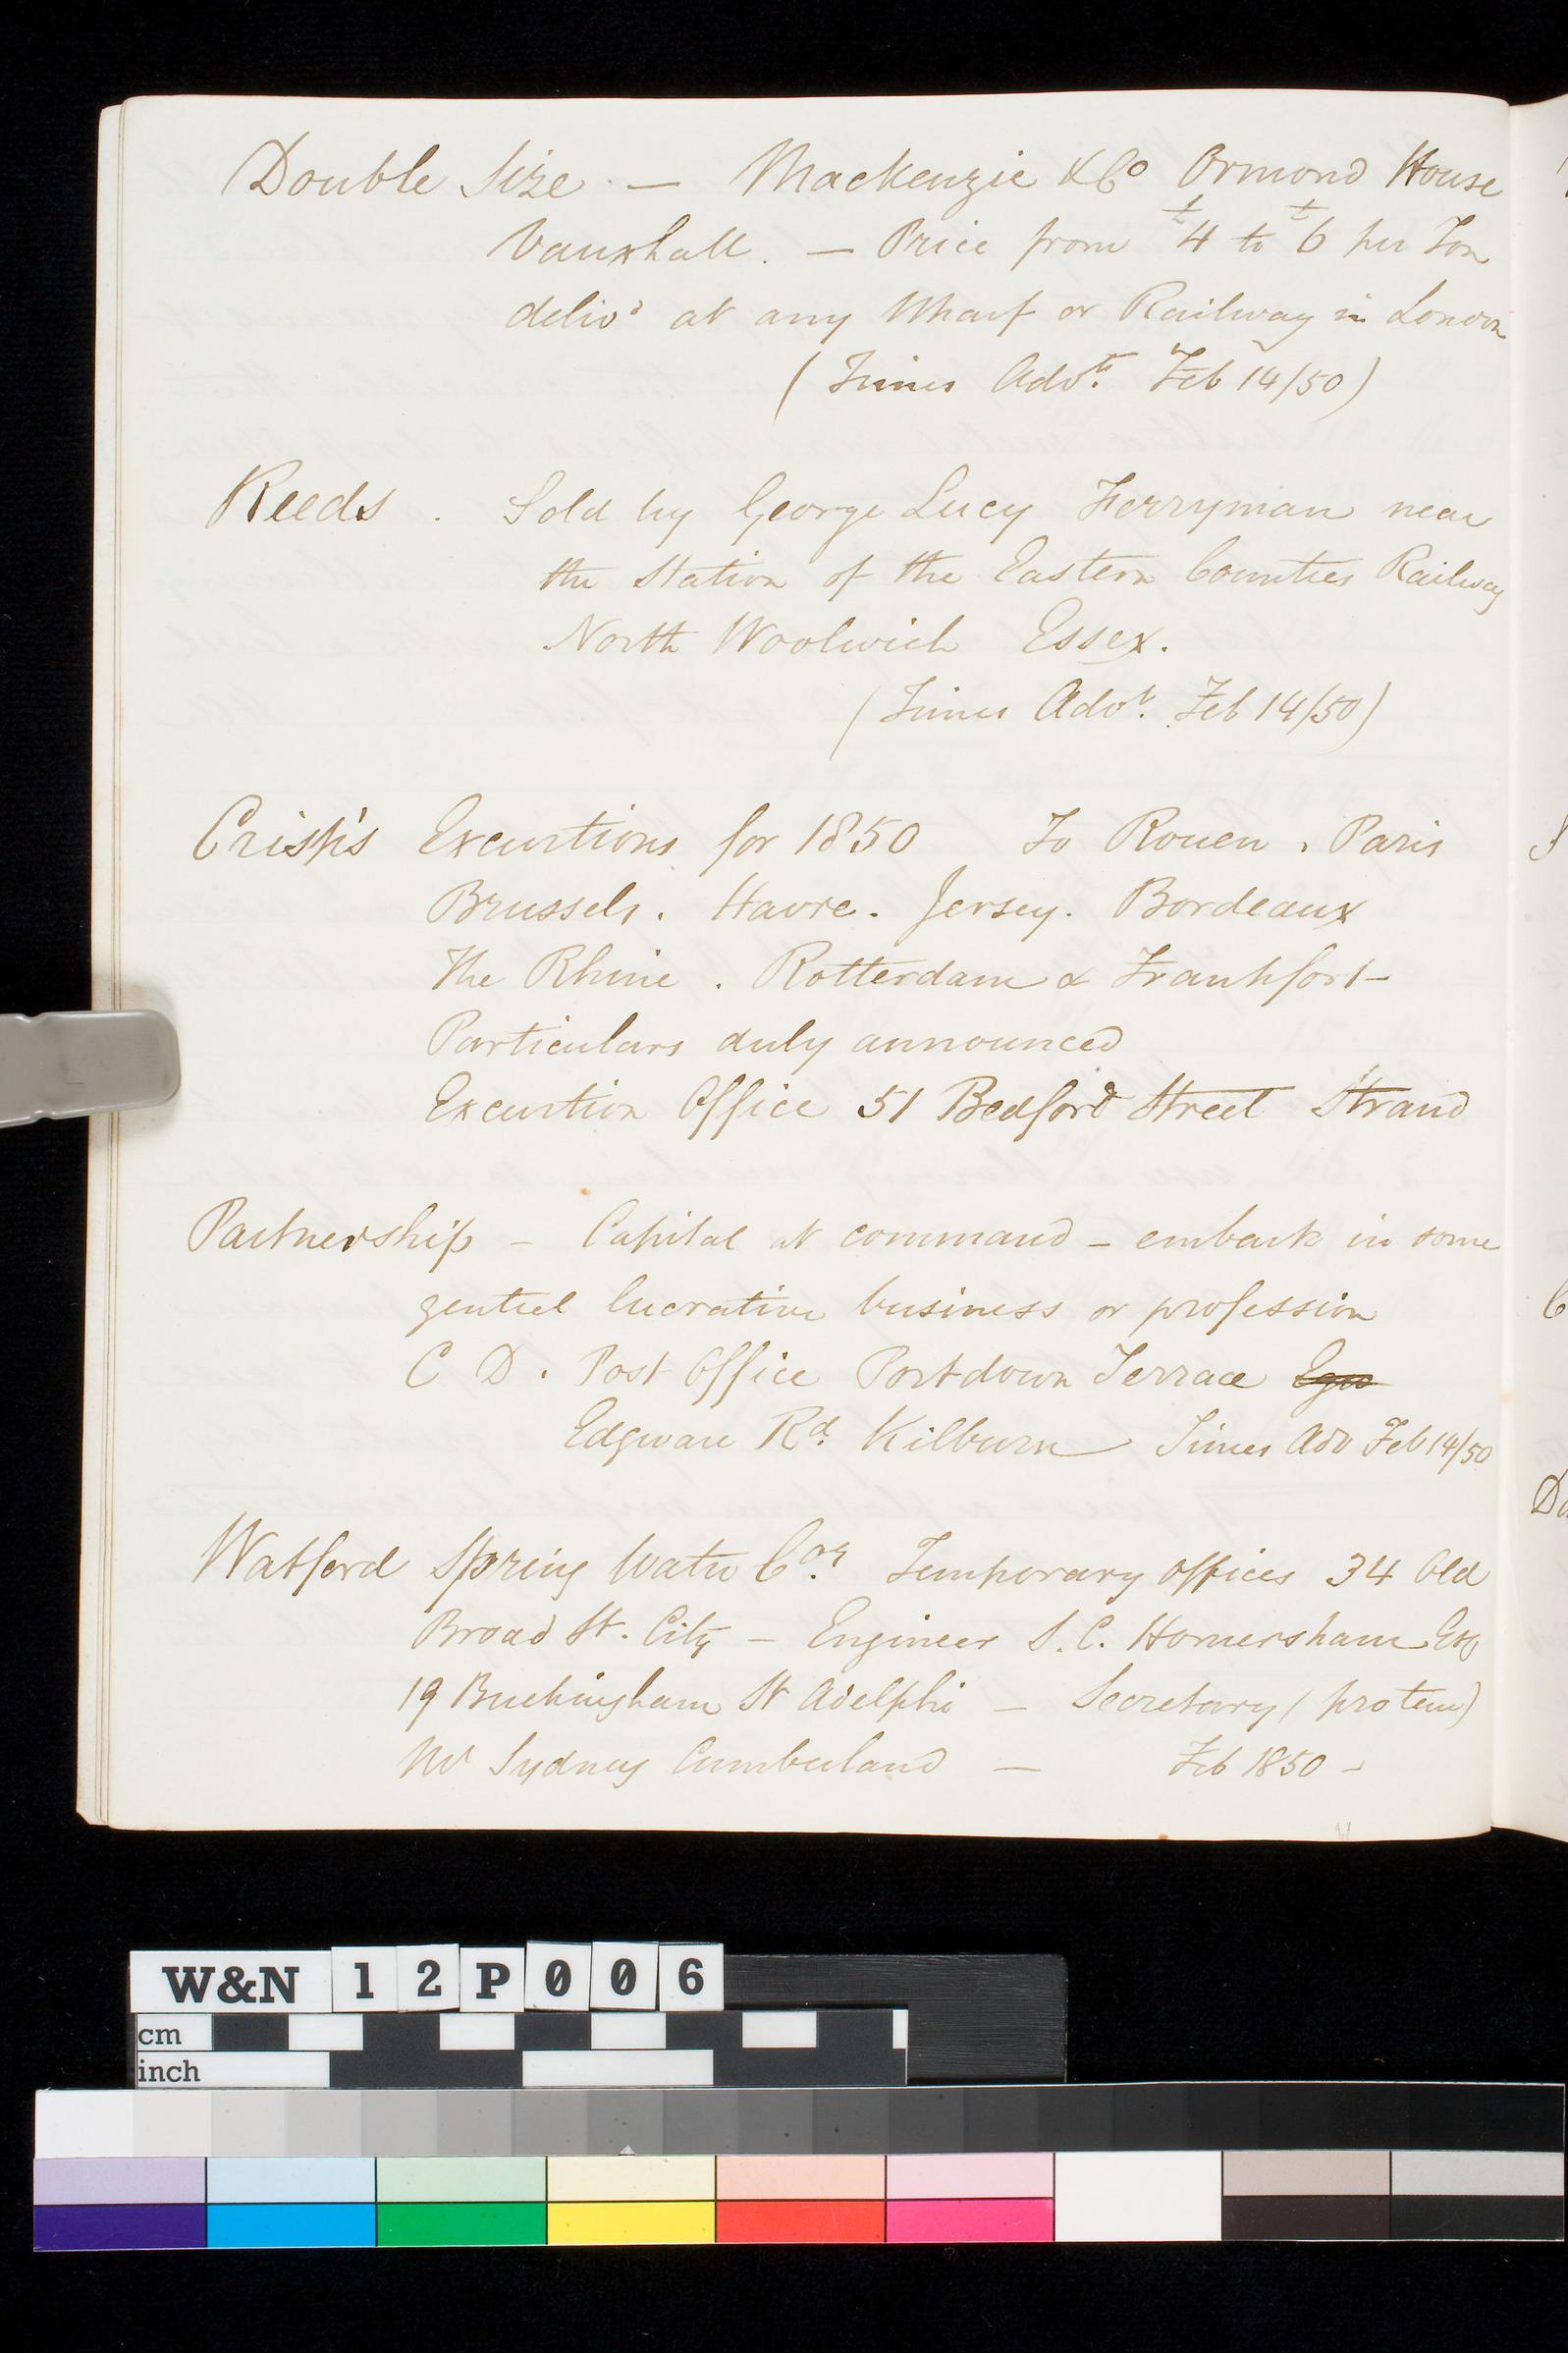 Double Size. — Mackenzie & Co Ormond House
Vauxhall. — Price from £4 to £6 per Ton
delivd at any Wharf or Railway in London
(Times Advt. Feb 14/50)
Reeds. Sold by George Lucy Ferryman near
the Station of the Eastern Counties Railway
North Woolwich Essex.
(Times Advt. Feb 14/50)
Crisp's Excurtions for 1850 To Rouen. Paris
Brussels. Havre. Jersey. Bordeaux
The Rhine. Rotterdam & Frankfort—
Particulars duly announced
Excurtion Office 51 Bedford Street Strand
Partnership — Capital at command — embark in some
genteel lucrative business or profession
C D. Post Office Portdown Terrace
Edgware Rd. Kilburn Times Adv Feb 14/50
Watford Spring Water Coy. Temporary offices 34 Old
Broad St. City — Engineer S. C. Homersham Esq
19 Buckingham St Adelphi — Secretary (protem)
Mr Sydney Cumberland — Feb 1850 -
W&N 12P006
cm
inch